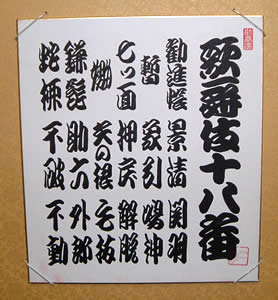 歌舞伎十八番
勧進帳 景清 関羽
暫 象引 鳴神
七ツ面 押戻 解脱
嫐 矢の根 毛抜
鎌髭 助六 外郎
蛇柳 不破 不動